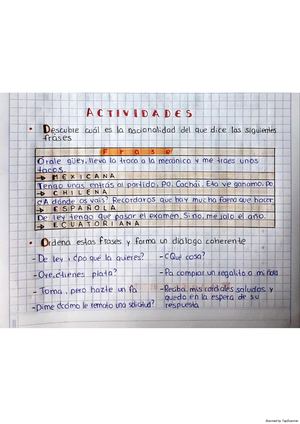 ACTIVIDADES
• Descubre cuál es la nacionalidad del que dice las siguientes
frases
Frase
Orale güey, lleva la troca a la mecánica y me traes unos
tacos.
→ MEXICANA
Tengo unas entrás al partido, Po. Cachái. Esto ve ganamo, Po
→ CHILENA
¿A dónde os vais? Recordaros que hoy mucha faena que hacer
→ ESPAÑOLA
De ley tengo que pasar el examen. Si no, me jalo el año.
→ ECUATORIANA
• Ordena estas frases y forma un diálogo coherente
- De ley ¿pa qué la quieres?
- ¿Qué cosa?
- Oye, ¿tienes plata?
- Pa comprar un regalito a mi ñaña
- Toma, pero hazte un fa
- Reciba mis cordiales saludos y
quedo en la espera de su
respuesta
- Dime ¿cómo le remato una solicitud?
Scanned by TapScanner